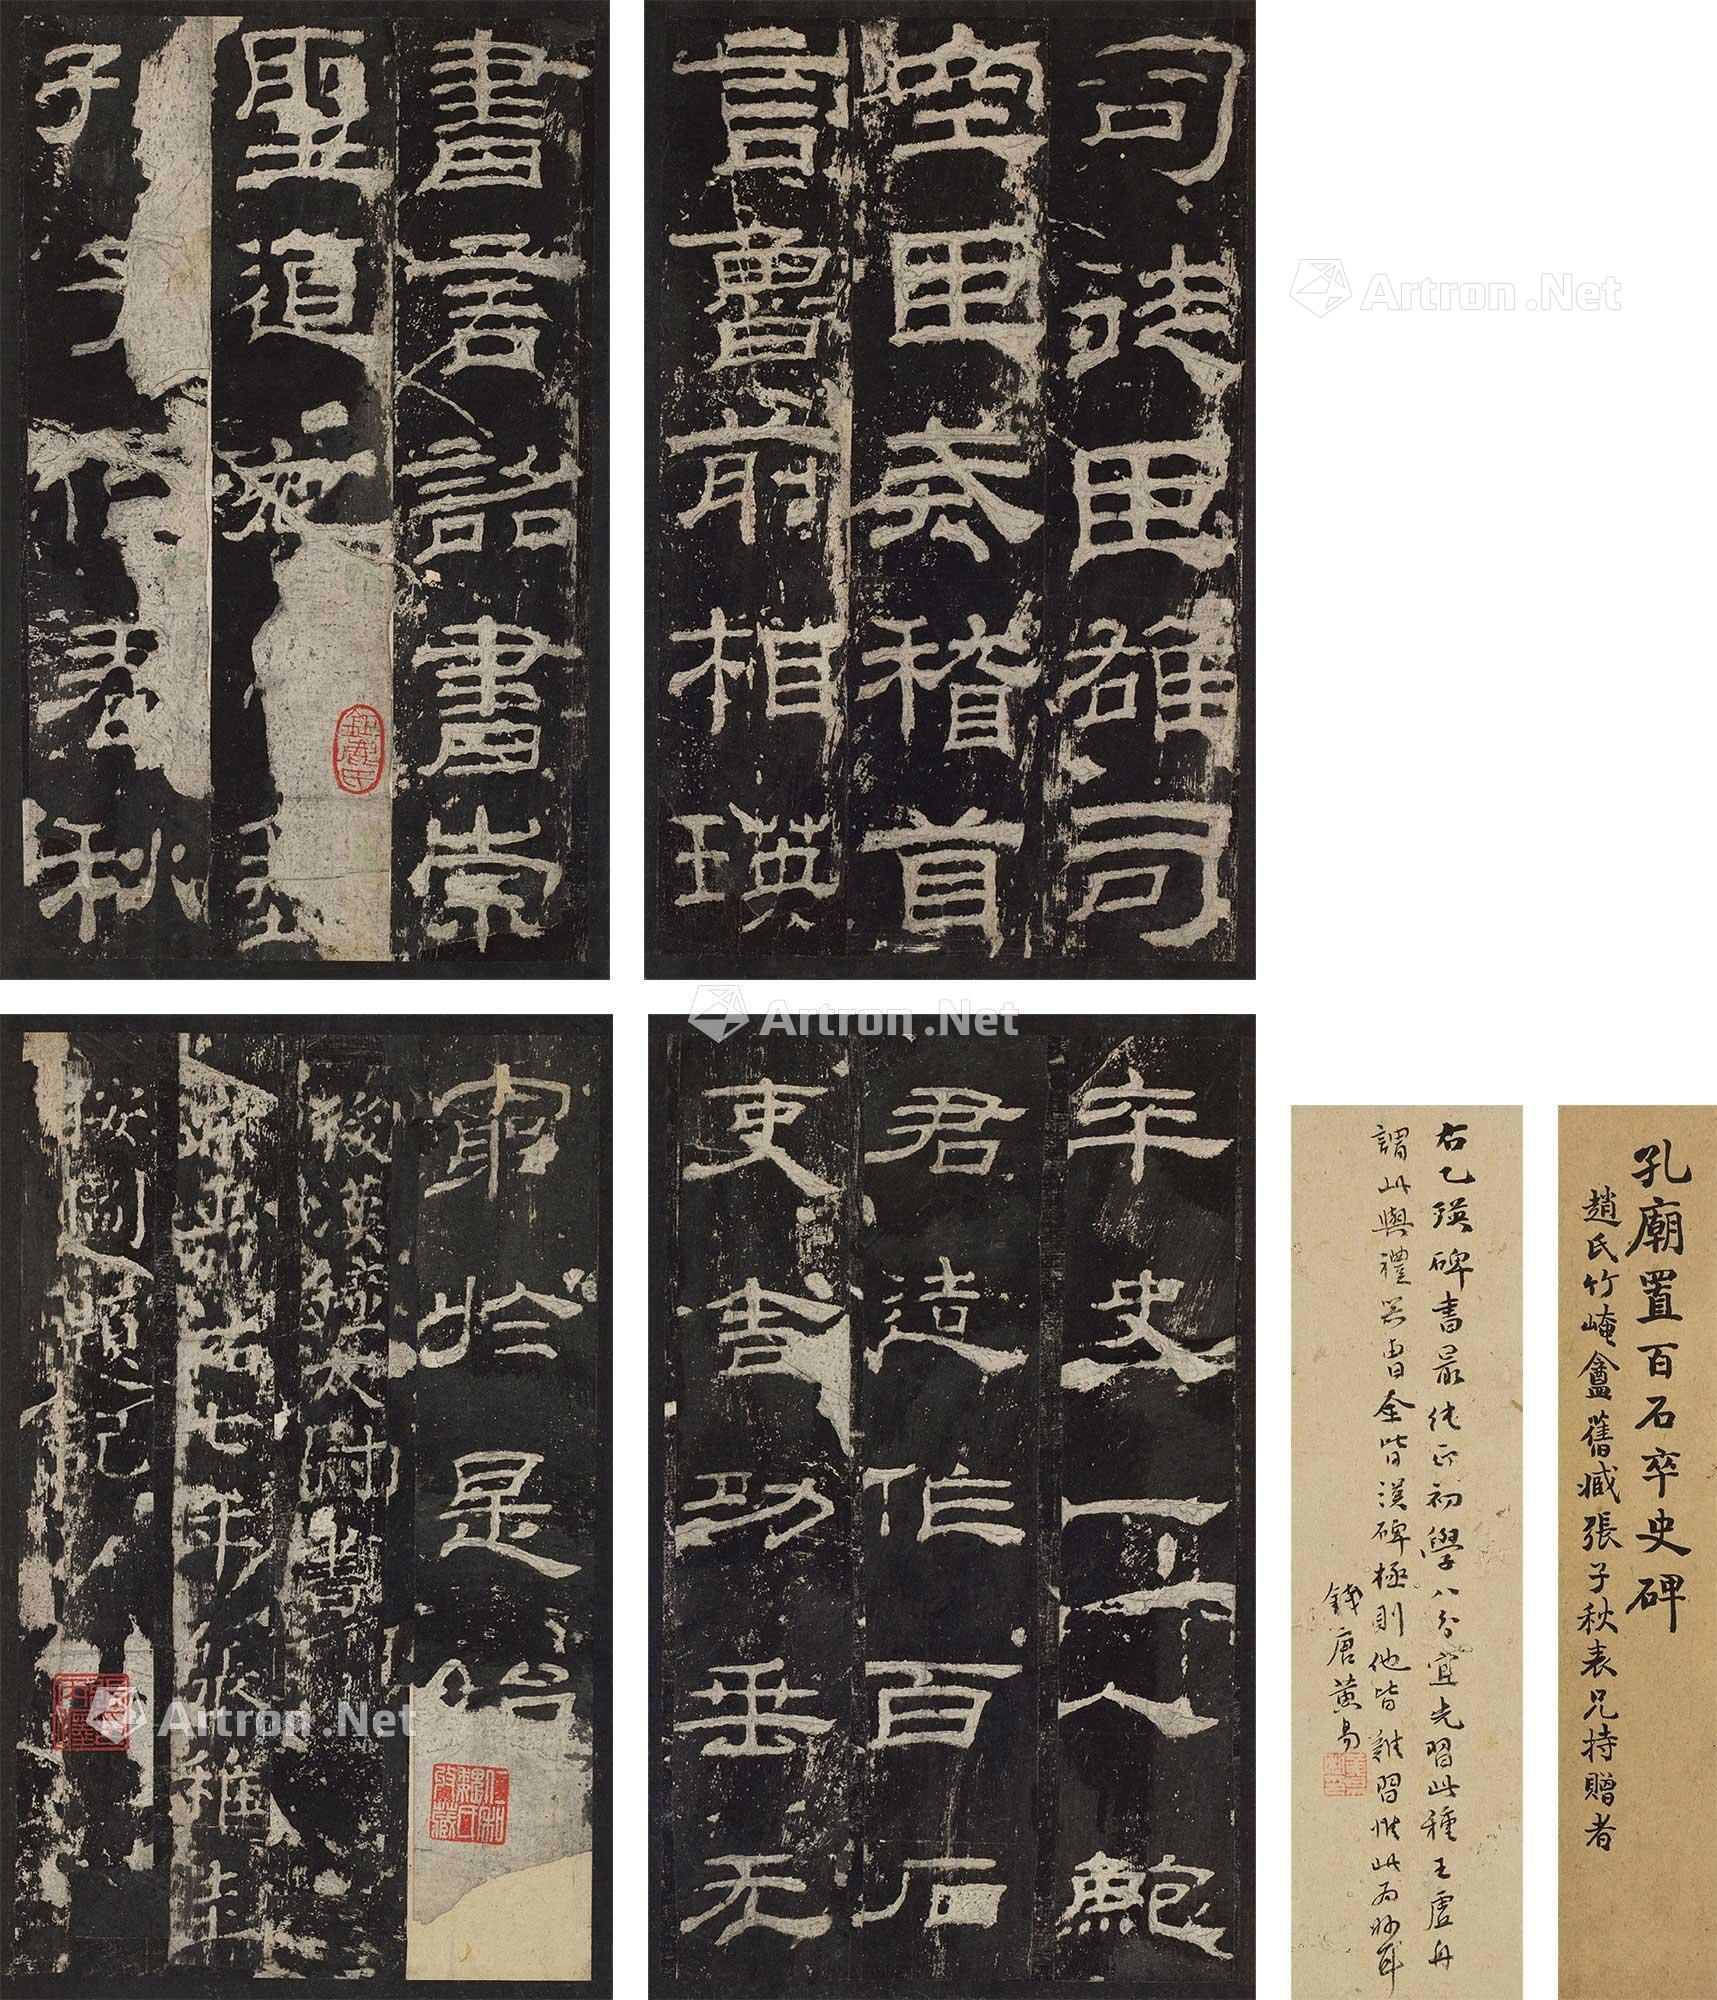 司徒臣雄司
空臣戒稽首
言魯前相瑛
書言詔書崇
聖道
子
秋
卒史一人鮑
君造作百石
吏舍功垂无
窮於是始
後漢鍾太尉書
宋嘉祐七年張稚圭
按圖題記
孔廟置百石卒史碑
趙氏竹崦盦舊臧張子秋表兄持贈者
右乙瑛碑書最純正初學八分宜先習此種王虛舟
謂此與禮器曹全皆漢碑極則他皆難習惟此為妙耳
錢唐黃易
Artron.Net
Artron.Net
Artron.Net